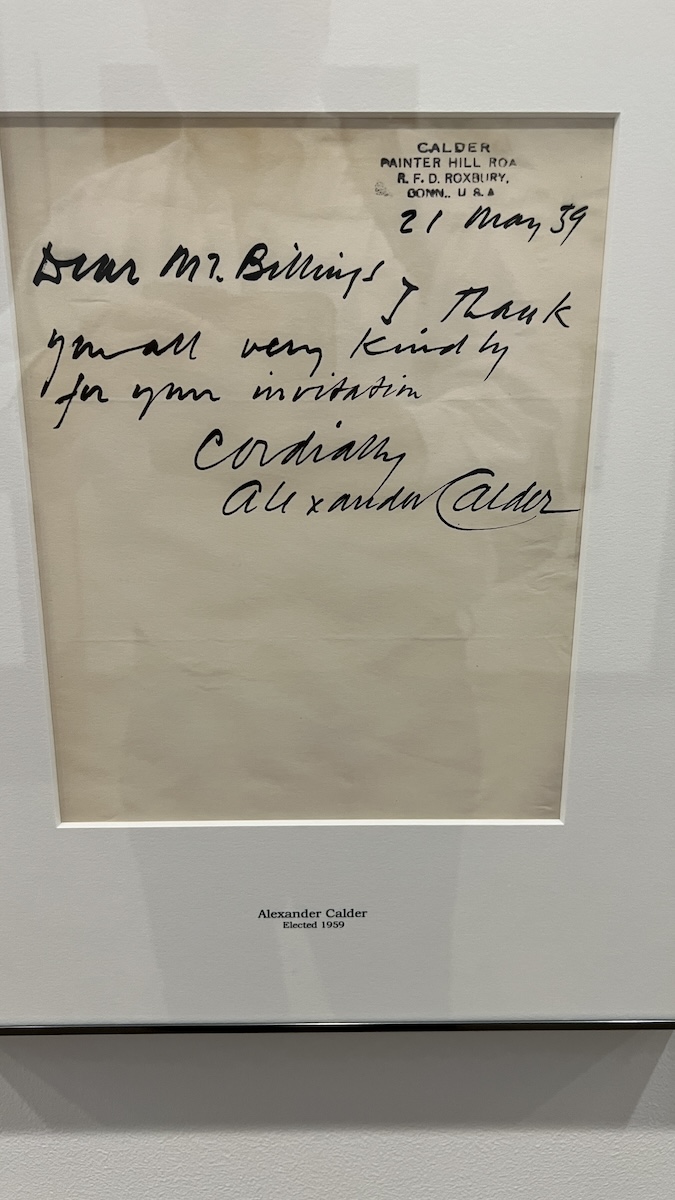 CALDER
PAINTER HILL ROA
R. F. D. ROXBURY,
CONN., U S. A
21 May 59
Dear Mr. Billings
I thank
you all very kindly
for your invitation
Cordially
Alexander Calder
Alexander Calder
Elected 1959